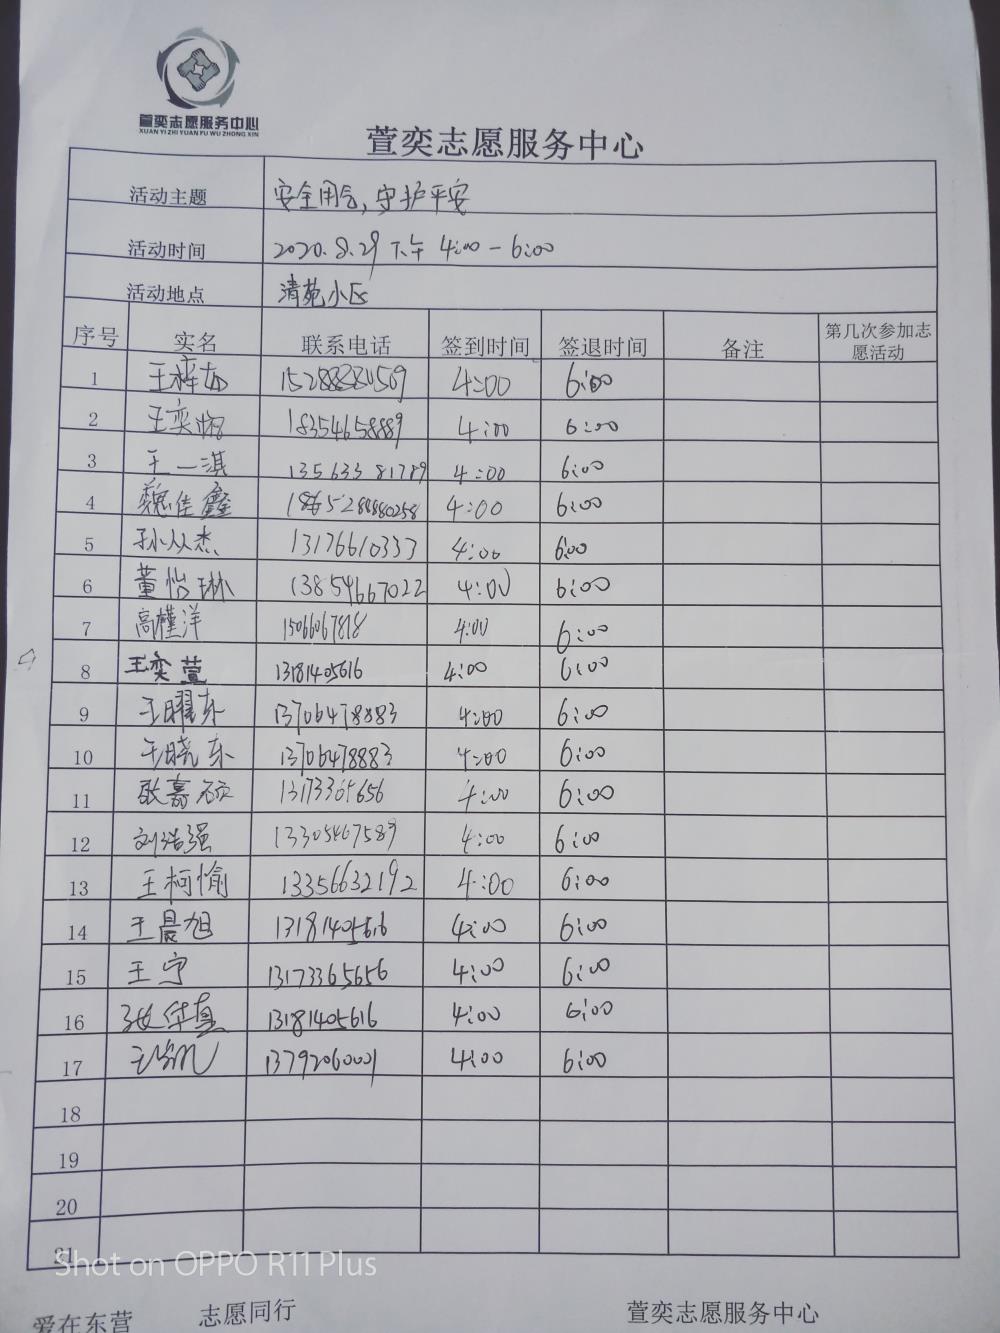 萱奕志愿服务中心
XUAN YI ZHI YUAN FU WU ZHONG XIN
萱奕志愿服务中心
活动主题 安全用气,守护平安
活动时间 2020.8.29 下午 4:00-6:00
活动地点 清苑小区
序号 实名 联系电话 签到时间 签退时间 备注 第几次参加志愿活动
1 王梓 4:00 6:00
2 王奕 18354658889 4:00 6:00
3 王一淇 13563381789 4:00 6:00
4 魏佳鑫 4:00 6:00
5 孙从杰 13176610333 4:00 6:00
6 董怡琳 13854667022 4:00 6:00
7 高槿洋 15066067818 4:00 6:00
8 王奕萱 13181405616 4:00 6:00
9 王曜东 13706478883 4:00 6:00
10 王晓东 13706478883 4:00 6:00
11 张嘉硕 13173365656 4:00 6:00
12 刘浩强 13305467589 4:00 6:00
13 王柯愉 13356632192 4:00 6:00
14 王晨旭 13181405616 4:00 6:00
15 王宁 13173365656 4:00 6:00
16 张华真 13181405616 4:00 6:00
17 王 13792060001 4:00 6:00
18
19
20
21
Shot on OPPO R11 Plus
爱在东营 志愿同行 萱奕志愿服务中心